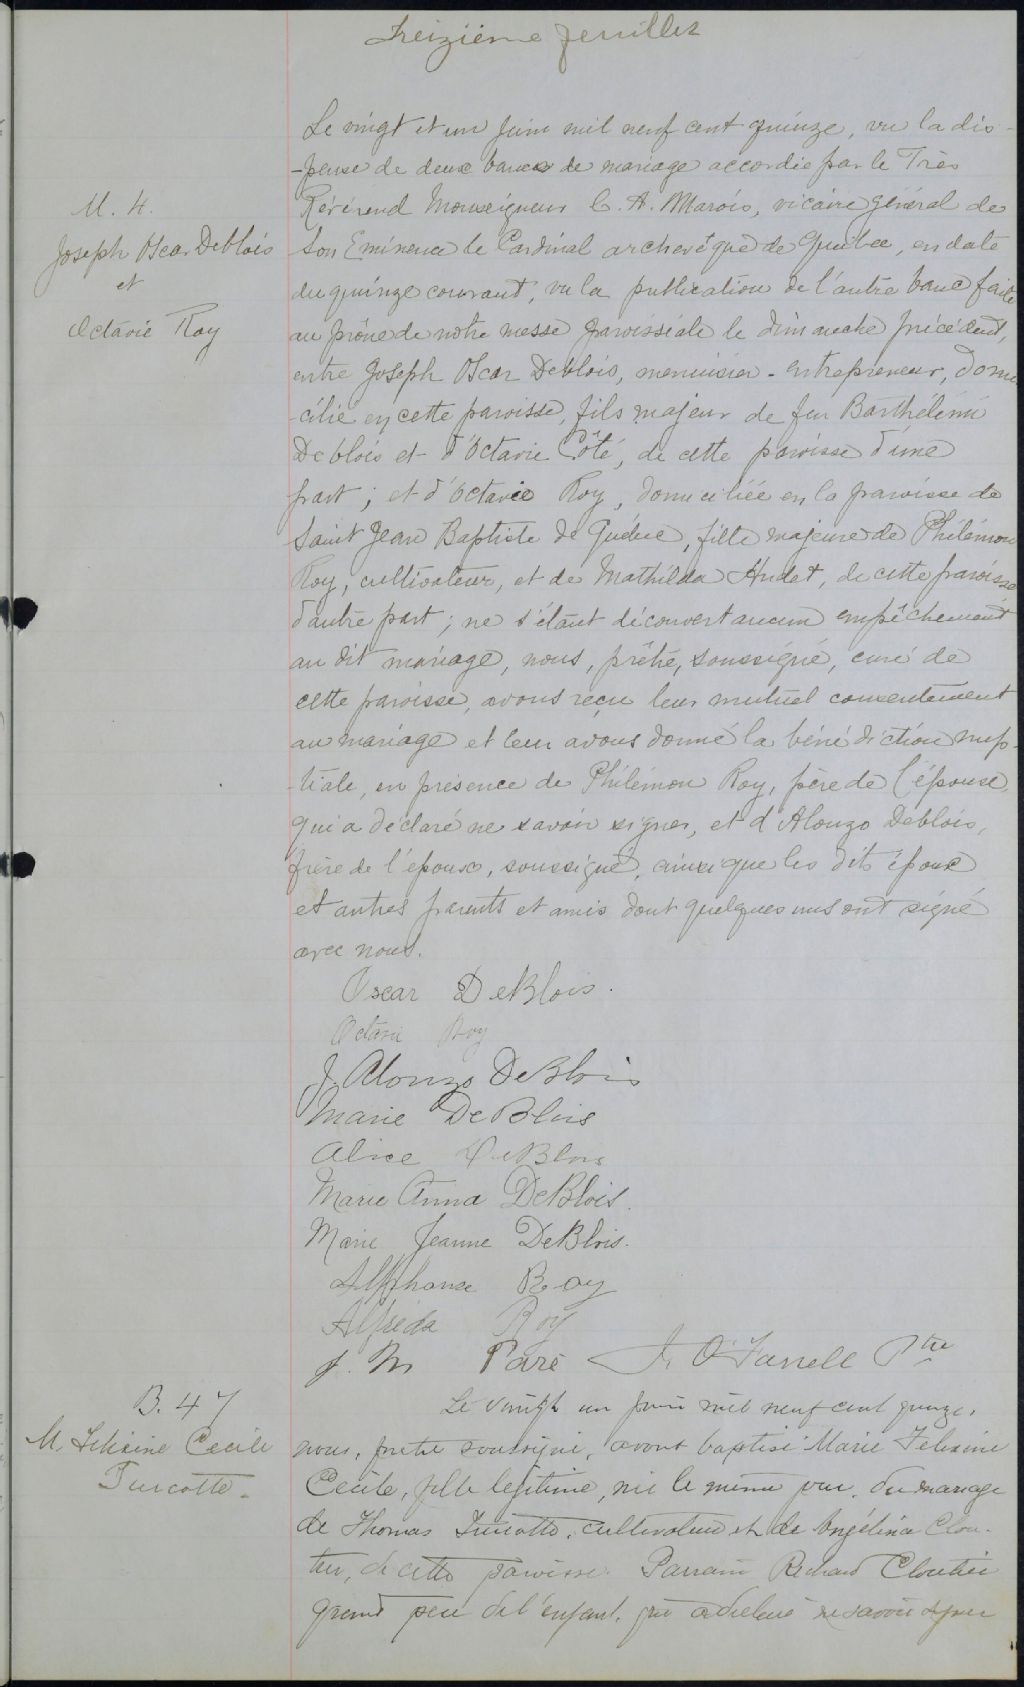 Treizième feuillet
Le vingt et un Juin mil neuf cent quinze, vu la dis-
-pense de deux bancs de mariage accordée par le Très
Révérend Monseigneur C. A. Marois, vicaire général de
Son Eminence le Cardinal archevêque de Québec, en date
du quinze courant, vu la publication de l'autre banc faite
au prône de notre messe paroissiale le dimanche précédent,
entre Joseph Oscar Deblois, menuisier-entrepreneur, domi
-cilié en cette paroisse, fils majeur de feu Barthélémi
Deblois et d'Octavie Côté, de cette paroisse d'une
part; et d'Octavie Roy, domiciliée en la paroisse de
Saint Jean Baptiste de Québec, fille majeure de Philémon
Roy, cultivateur, et de Mathilda Hudet, de cette paroisse
d'autre part; ne s'étant découvert aucun empêchement
au dit mariage, nous, prêtre, soussigné, curé de
cette paroisse, avons reçu leur mutuel consentement
au mariage et leur avons donné la bénédiction nup-
-tiale, en présence de Philémon Roy, père de l'épouse,
qui a déclaré ne savoir signer, et d'Alonzo Deblois,
frère de l'époux, soussigné, ainsi que les dits époux
et autres parents et amis dont quelques uns ont signé
avec nous.
M. 4.
Joseph Oscar Deblois
et
Octavie Roy
Oscar DeBlois.
Octavie Roy
J. Alonzo DeBlois
Marie DeBlois
Alice DeBlois
Marie Anna DeBlois.
Marie Jeanne DeBlois.
Alphonse Roy
Alfreda Roy
J. M Paré J. O'Farrell Ptre
B. 47
M. Félixine Cecile
Turcotte.
Le vingt un juin mil neuf cent quinze,
nous, prêtre soussigné, avons baptisé Marie Félixine
Cecile, fille légitime, née le même jour, du mariage
de Thomas Turcotte, cultivateur et de Angélina Clou-
tier, de cette paroisse. Parrain Richard Cloutier
grand père de l'enfant, qui a déclaré ne savoir signer